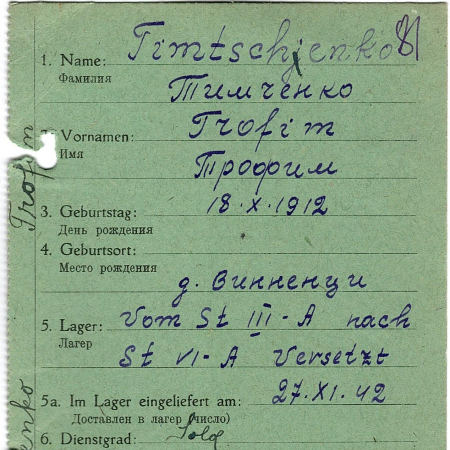 1. Name: Timtschjenko
Фамилия
Тимченко
2. Vornamen: Trofim
Имя
Трофим
3. Geburtstag: 18.X.1912
День рождения
4. Geburtsort:
Место рождения
д. Винненци
5. Lager: Vom St III-A nach
Лагер
St VI-A Versetzt
5a. Im Lager eingeliefert am: 27.XI.42
Доставлен в лагер (число)
6. Dienstgrad: Sold
Trofim
enko